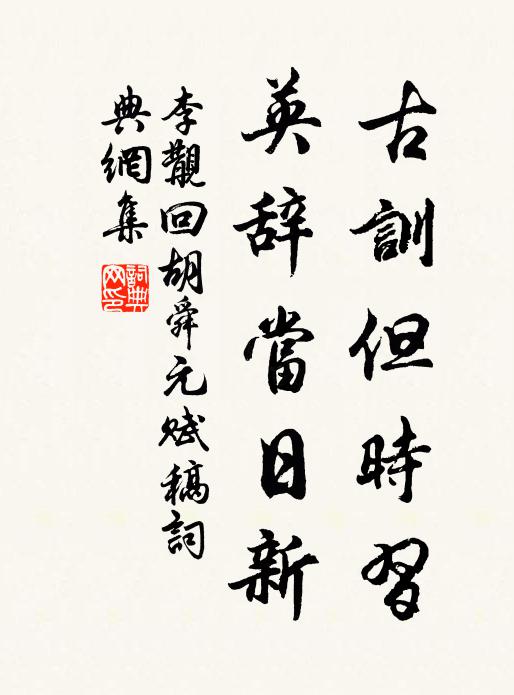 古訓但時習
英辞當日新
李覯回胡舜元赋稿詞
典網集
詞典网印